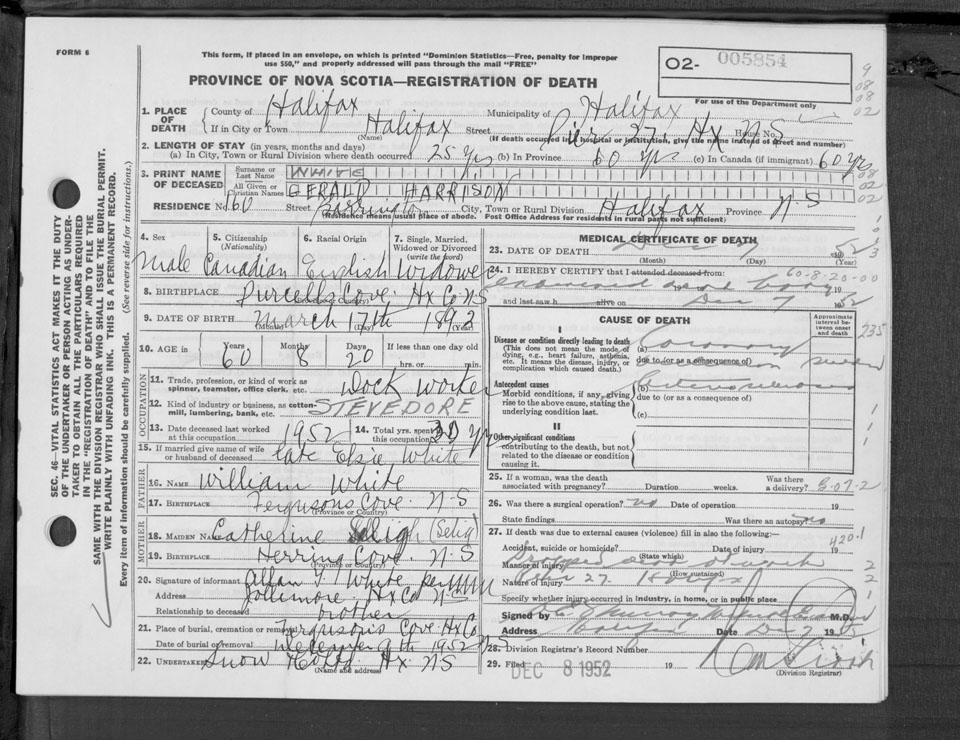 FORM 6
This form, if placed in an envelope, on which is printed "Dominion Statistics—Free, penalty for improper
use $50," and properly addressed will pass through the mail "FREE"
PROVINCE OF NOVA SCOTIA—REGISTRATION OF DEATH
02- 005854
For use of the Department only
9
08
08
02
1. PLACE OF DEATH
County of Halifax Municipality of Halifax
If in City or Town Halifax Street Pier 27. Hx N S House No.
(Name) (If death occurred in a hospital or institution, give the name instead of street and number)
2. LENGTH OF STAY (in years, months and days)
(a) In City, Town or Rural Division where death occurred 25 Yrs (b) In Province 60 Yrs (c) In Canada (if immigrant) 60 Yrs
3. PRINT NAME OF DECEASED
Surname or Last Name WHITE
All Given or Christian Names GERALD HARRISON
08
02
02
RESIDENCE No. 160 Street Barrington City, Town or Rural Division Halifax Province N S
(Residence means usual place of abode. Post Office Address for residents in rural parts not sufficient)
4. Sex
Male
5. Citizenship
(Nationality)
Canadian
6. Racial Origin
English
7. Single, Married, Widowed or Divorced
(write the word)
Widower
8. BIRTHPLACE Purcells Cove, Hx Co. N S
(Province or Country)
9. DATE OF BIRTH March 17th 1892
(Month) (Day) (Year)
10. AGE in Years Months Days If less than one day
60 8 20 hrs. or min.
OCCUPATION
11. Trade, profession, or kind of work as
spinner, teamster, office clerk. etc. Dock worker
12. Kind of industry or business, as cotton-
mill, lumbering, bank, etc. STEVEDORE
13. Date deceased last worked
at this occupation 1952
14. Total yrs. spent
this occupation 30 Yrs
15. If married give name of wife
or husband of deceased late Elsie White
FATHER
16. NAME William White
17. BIRTHPLACE Fergusons Cove. N-S
(Province or Country)
MOTHER
18. MAIDEN NAME Catherine (Selig)
19. BIRTHPLACE Herring Cove. N. S
(Province or Country)
20. Signature of informant Allan White per
Address Jollimore. Hx Co N-S
Relationship to deceased brother
21. Place of burial, cremation or removal Fergusons Cove Hx Co
Date of burial or removal December 9th 1952 N S
22. Undertaker Snow Hx. N S
(Name and address)
MEDICAL CERTIFICATE OF DEATH
23. DATE OF DEATH Dec 7 1952
(Month) (Day)
24. I HEREBY CERTIFY that I attended deceased from:
60-8-20-00
dead body
and last saw h alive on Dec 7 1952
CAUSE OF DEATH
Approximate interval between onset and death
235
I
Disease or condition directly leading to death
(This does not mean the mode of dying, e.g., heart failure, asthenia, etc. It means the disease, injury, or complication which caused death.)
(a) Coronary
due to (or as a consequence of)
Antecedent causes
Morbid conditions, if any, giving rise to the above cause, stating the underlying condition last.
(b)
due to (or as a consequence of)
(c)
II
Other significant conditions
contributing to the death, but not related to the disease or condition causing it.
25. If a woman, was the death
associated with pregnancy? Duration weeks. Was there
a delivery?
26. Was there a surgical operation? no Date of operation 19
State findings Was there an autopsy? no
27. If death was due to external causes (violence) fill in also the following:
420.1
Accident, suicide or homicide? Date of injury 19
(State which)
Manner of injury Dropped dead at work
(How sustained)
Nature of injury Pier 27. Halifax
Specify whether injury occurred in industry, in home, or in public place
Signed by Murray M.D.
Address Halifax Date Dec 7 1952
28. Division Registrar's Record Number
29. Filed DEC 8 1952 19
(Division Registrar)
SEC. 46—VITAL STATISTICS ACT MAKES IT THE DUTY
OF THE UNDERTAKER OR PERSON ACTING AS UNDER-
TAKER TO OBTAIN ALL THE PARTICULARS REQUIRED
IN THE "REGISTRATION OF DEATH" AND TO FILE THE
SAME WITH THE DIVISION REGISTRAR WHO SHALL ISSUE THE BURIAL PERMIT.
WRITE PLAINLY WITH UNFADING INK. THIS IS A PERMANENT RECORD.
Every item of information should be carefully supplied. (See reverse side for instructions.)